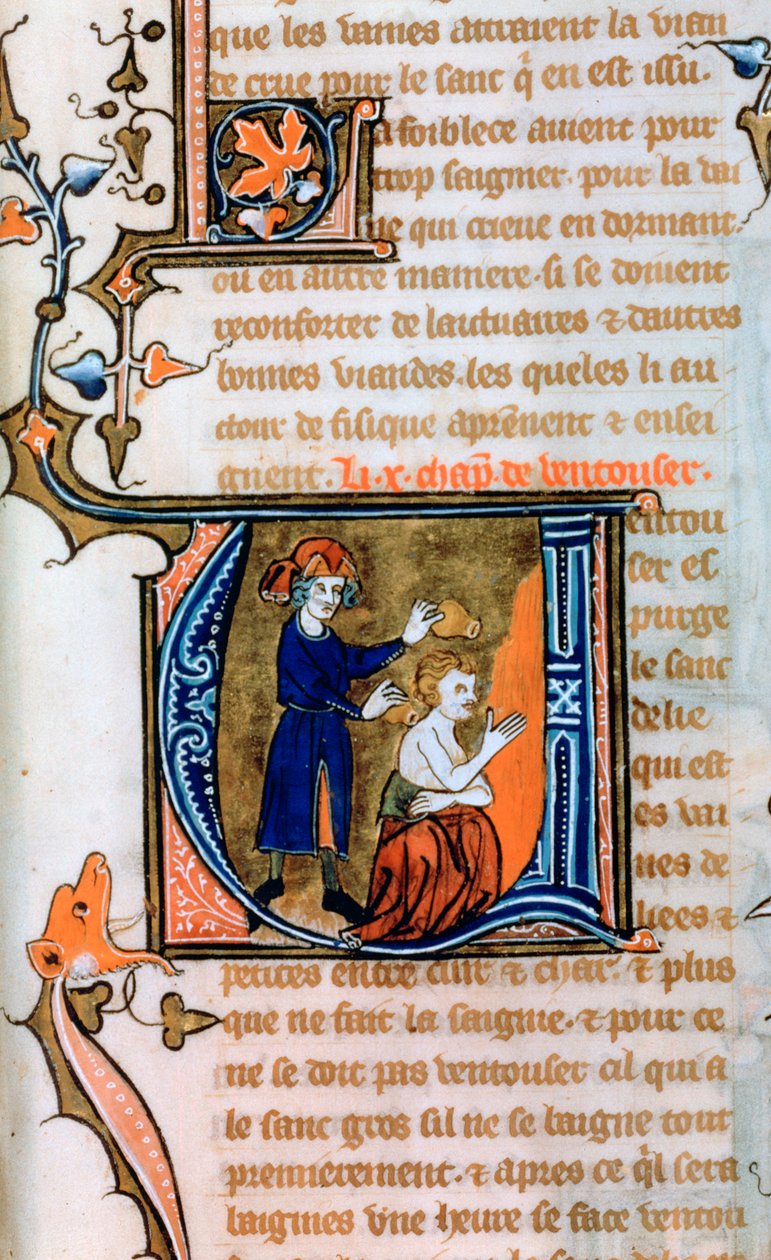 que les vaines attraient la vian
de crue pour le sanc q̃ en est issu.
La foiblece auient pour
trop saignier. pour la vai
ne qui crieue en dormant.
ou en autre maniere. si se doiuent
reconforter de laituaires ⁊ dautres
bonnes viandes. les queles li au
ctour de fisique aprẽnent ⁊ ensei
gnent. Li .x. chap̃. de ventouser.
Ventou
ser est
purge
le sanc
delie
qui est
es vai
nes de
liees ⁊
petites entre cuir ⁊ char. ⁊ plus
que ne fait la saignie. ⁊ pour ce
ne se doit pas ventouser cil qui a
le sanc gros sil ne se baigne tout
premierement. ⁊ apres ce q̃l sera
baignies vne heure se face ventou